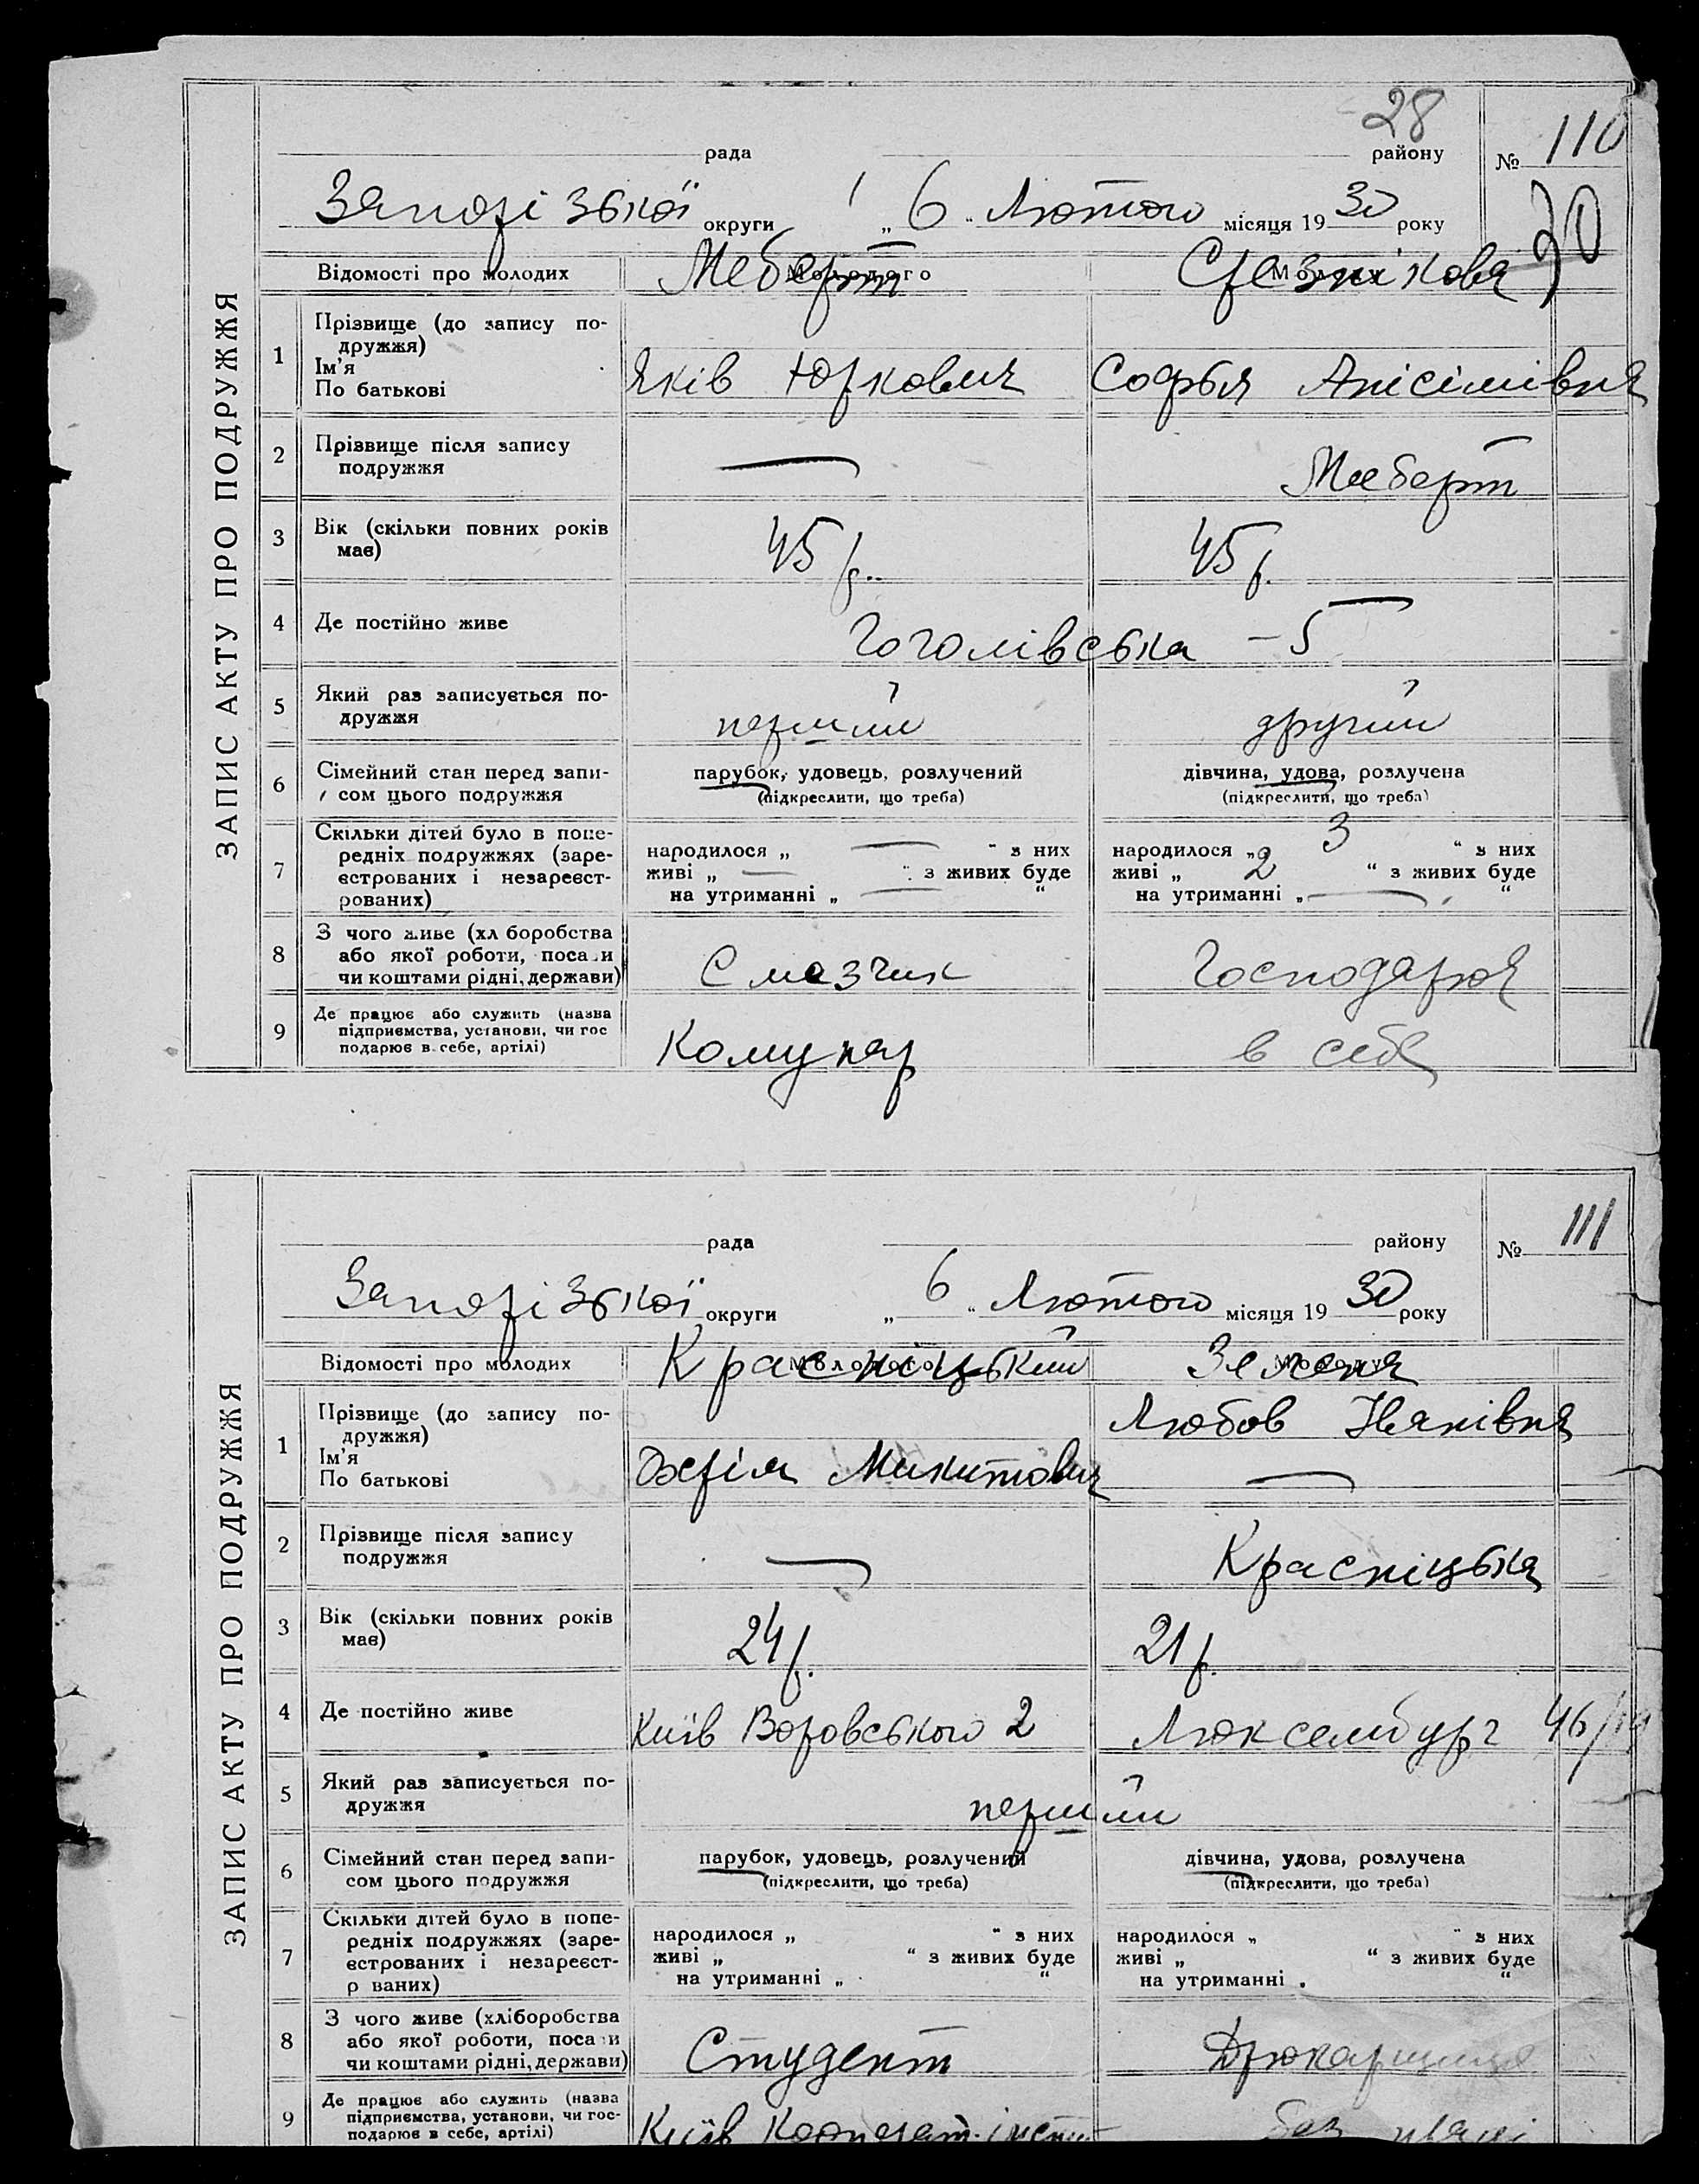 ЗАПИС АКТУ ПРО ПОДРУЖЖЯ
28
рада району № 110
Запорізької округи „ 6 " Лютого місяця 1930 року
30
Відомості про молодих Молодого Молодої
Меберт Срезнікова
1 Прізвище (до запису по-
дружжя)
Ім'я
По батькові
Яків Юркович Софья Анісімівна
2 Прізвище після запису
подружжя
— Меберт
3 Вік (скільки повних років
має)
45 р. 45 р.
4 Де постійно живе Гоголівська – 5
5 Який раз записується по-
дружжя
перший другий
6 Сімейний стан перед запи-
сом цього подружжя
парубок, удовець, розлучений дівчина, удова, розлучена
(підкреслити, що треба) (підкреслити, що треба)
7 Скільки дітей було в попе-
редніх подружжях (заре-
єстрованих і незареєст-
рованих)
народилося „ — " з них народилося „ 3 " з них
живі „ — " з живих буде живі „ 2 " з живих буде
на утриманні „ — " на утриманні „ — "
8 З чого живе (хл боробства
або якої роботи, поса и
чи коштами рідні, держави)
Смазчик Господарює
9 Де працює або служить (назва
підприємства, установи, чи гос
подарює в себе, артілі)
Комунар в себе
ЗАПИС АКТУ ПРО ПОДРУЖЖЯ
рада району № 111
Запорізької округи „ 6 " Лютого місяця 1930 року
Відомості про молодих Молодого Молодої
Красніцький
1 Прізвище (до запису по-
дружжя)
Ім'я
По батькові
Любов Іванівна
Охрім Микитович —
2 Прізвище після запису
подружжя
— Красніцька
3 Вік (скільки повних років
має)
24 р. 21 р.
4 Де постійно живе Київ Воровського 2 Люксембург 46/
5 Який раз записується по-
дружжя
перший
6 Сімейний стан перед запи-
сом цього подружжя
парубок, удовець, розлучений дівчина, удова, розлучена
(підкреслити, що треба) (підкреслити, що треба)
7 Скільки дітей було в попе-
редніх подружжях (заре-
єстрованих і незареєст-
р ваних)
народилося „ " з них народилося „ " з них
живі „ " з живих буде живі „ " з живих буде
на утриманні „ " на утриманні „ "
8 З чого живе (хліборобства
або якої роботи, поса и
чи коштами рідні, держави)
Студент Друкарщиця
9 Де працює або служить (назва
підприємства, установи, чи гос-
подарює в себе, артілі)
Київ Кооперат. інстит без праці